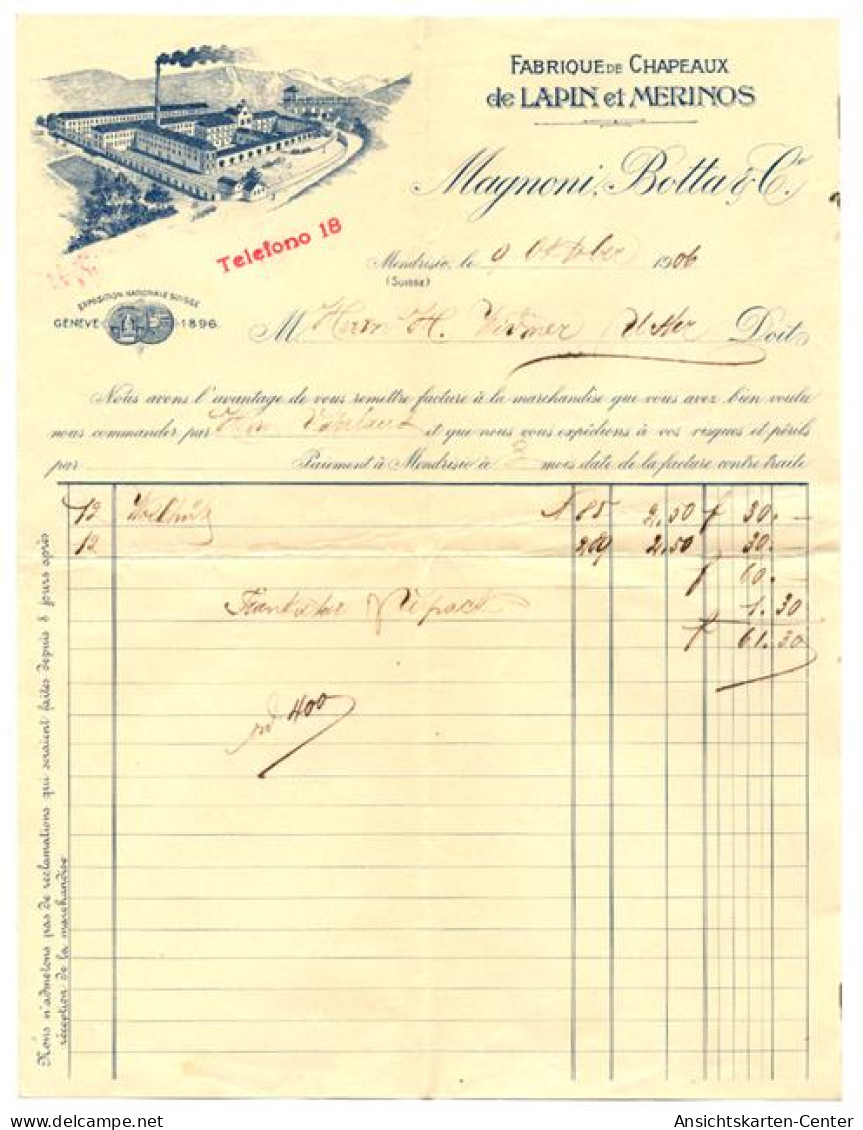 FABRIQUE DE CHAPEAUX
de LAPIN et MERINOS
Magnoni, Botta & Cie
Telefono 18
Mendrisio, le 9 Oktober 1906
(SUISSE)
EXPOSITION NATIONALE SUISSE
GENÈVE 1896
M Herrn H. Widmer Uster Doit
Nous avons l'avantage de vous remettre facture à la marchandise que vous avez bien voulu
nous commander par Hrn et que nous vous expédions à vos risques et périls
par Paiement à Mendrisio à 2 mois date de la facture contre traite
12 Wollhüte N 85 2,50 f 30.—
12 269 2,50 30.—
f 60.—
1.30
f 61.30
400
Nous n'admetons pas de réclamations qui seraient faites depuis 8 jours après
réception de la marchandise
Ansichtskarten-Center